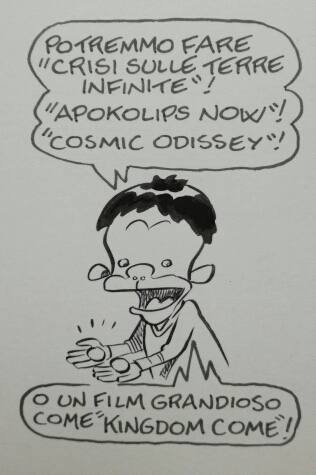 POTREMMO FARE
"CRISI SULLE TERRE
INFINITE"!
"APOKOLIPS NOW"!
"COSMIC ODISSEY"!
O UN FILM GRANDIOSO
COME "KINGDOM COME"!